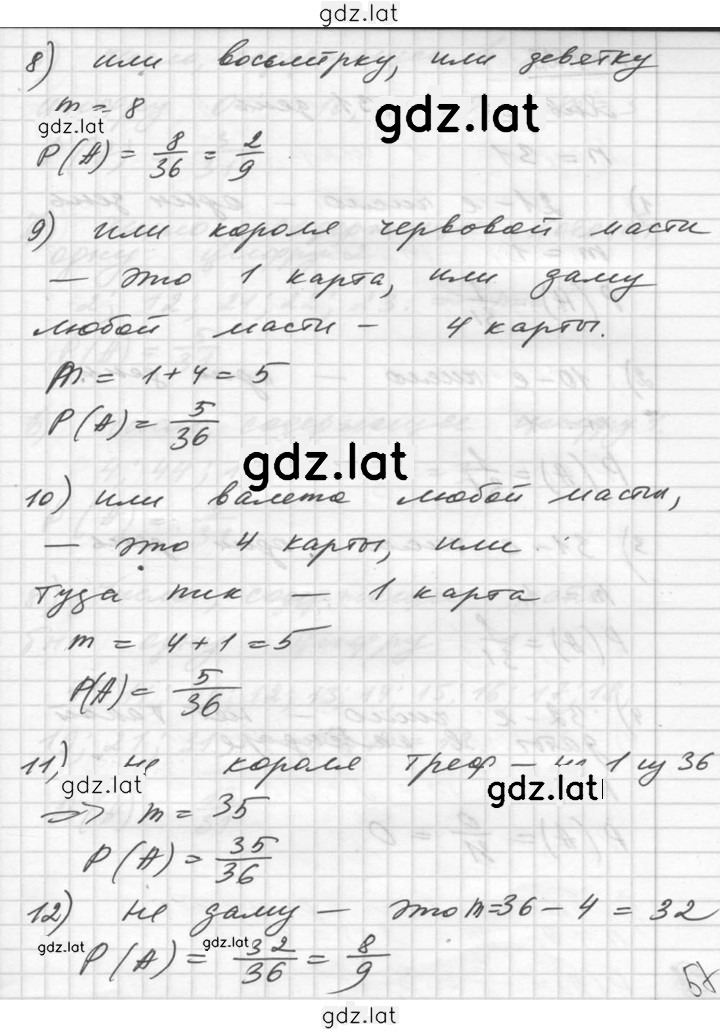 gdz.lat
8) или восьмёрку, или девятку
gdz.lat
m = 8
gdz.lat
P(A) = 8/36 = 2/9
9) или короля червовой масти
— это 1 карта, или даму
любой масти — 4 карты.
m = 1+4 = 5
P(A) = 5/36
gdz.lat
10) или валета любой масти,
— это 4 карты, или
туза пик — 1 карта
m = 4+1 = 5
P(A) = 5/36
11) не короля треф — 1 из 36
gdz.lat
gdz.lat
=> m = 35
P(A) = 35/36
12) не даму — это m=36-4 = 32
gdz.lat
gdz.lat
P(A) = 32/36 = 8/9
gdz.lat